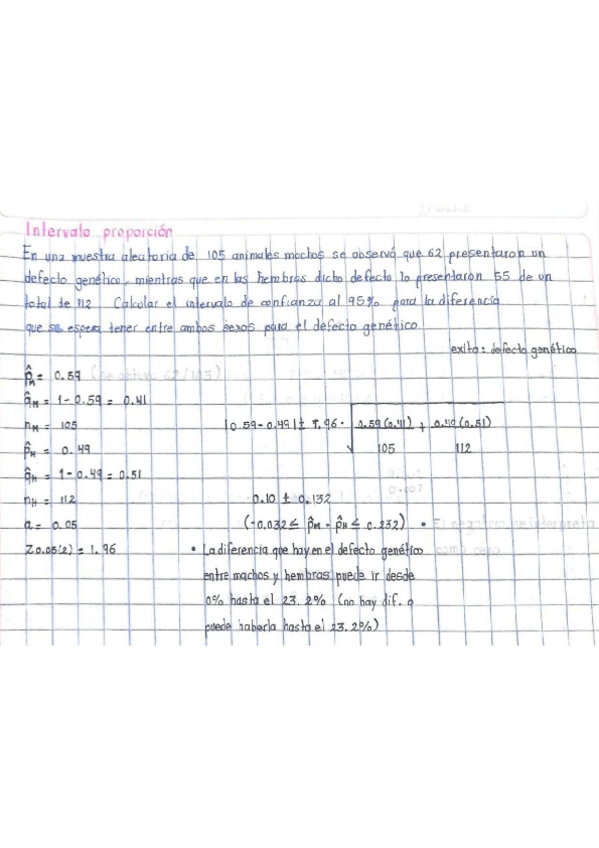 Intervalo proporción
En una muestra aleatoria de 105 animales machos se observó que 62 presentaron un
defecto genético, mientras que en las hembras dicho defecto lo presentaron 55 de un
total de 112 Calcular el intervalo de confianza al 95% para la diferencia
que se espera tener entre ambos sexos para el defecto genético.
exito: defecto genético
p̂M = 0.59 (se obtuvo 62/105)
q̂M = 1 - 0.59 = 0.41
nM = 105
|0.59 - 0.49| ± 1.96 · √ 0.59(0.41) / 105 + 0.49(0.51) / 112
p̂H = 0.49
q̂H = 1 - 0.49 = 0.51
nH = 112
0.10 ± 0.132
a = 0.05
(-0.032 ≤ p̂M - p̂H ≤ 0.232) • El negativo se interpreta como cero
Z0.05(2) = 1.96
• La diferencia que hay en el defecto genético
entre machos y hembras puede ir desde
0% hasta el 23.2% (no hay dif. o
puede haberla hasta el 23.2%)